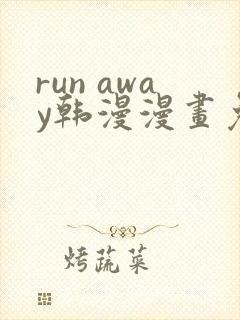 run awa
y韩漫漫畫
烤蔬菜